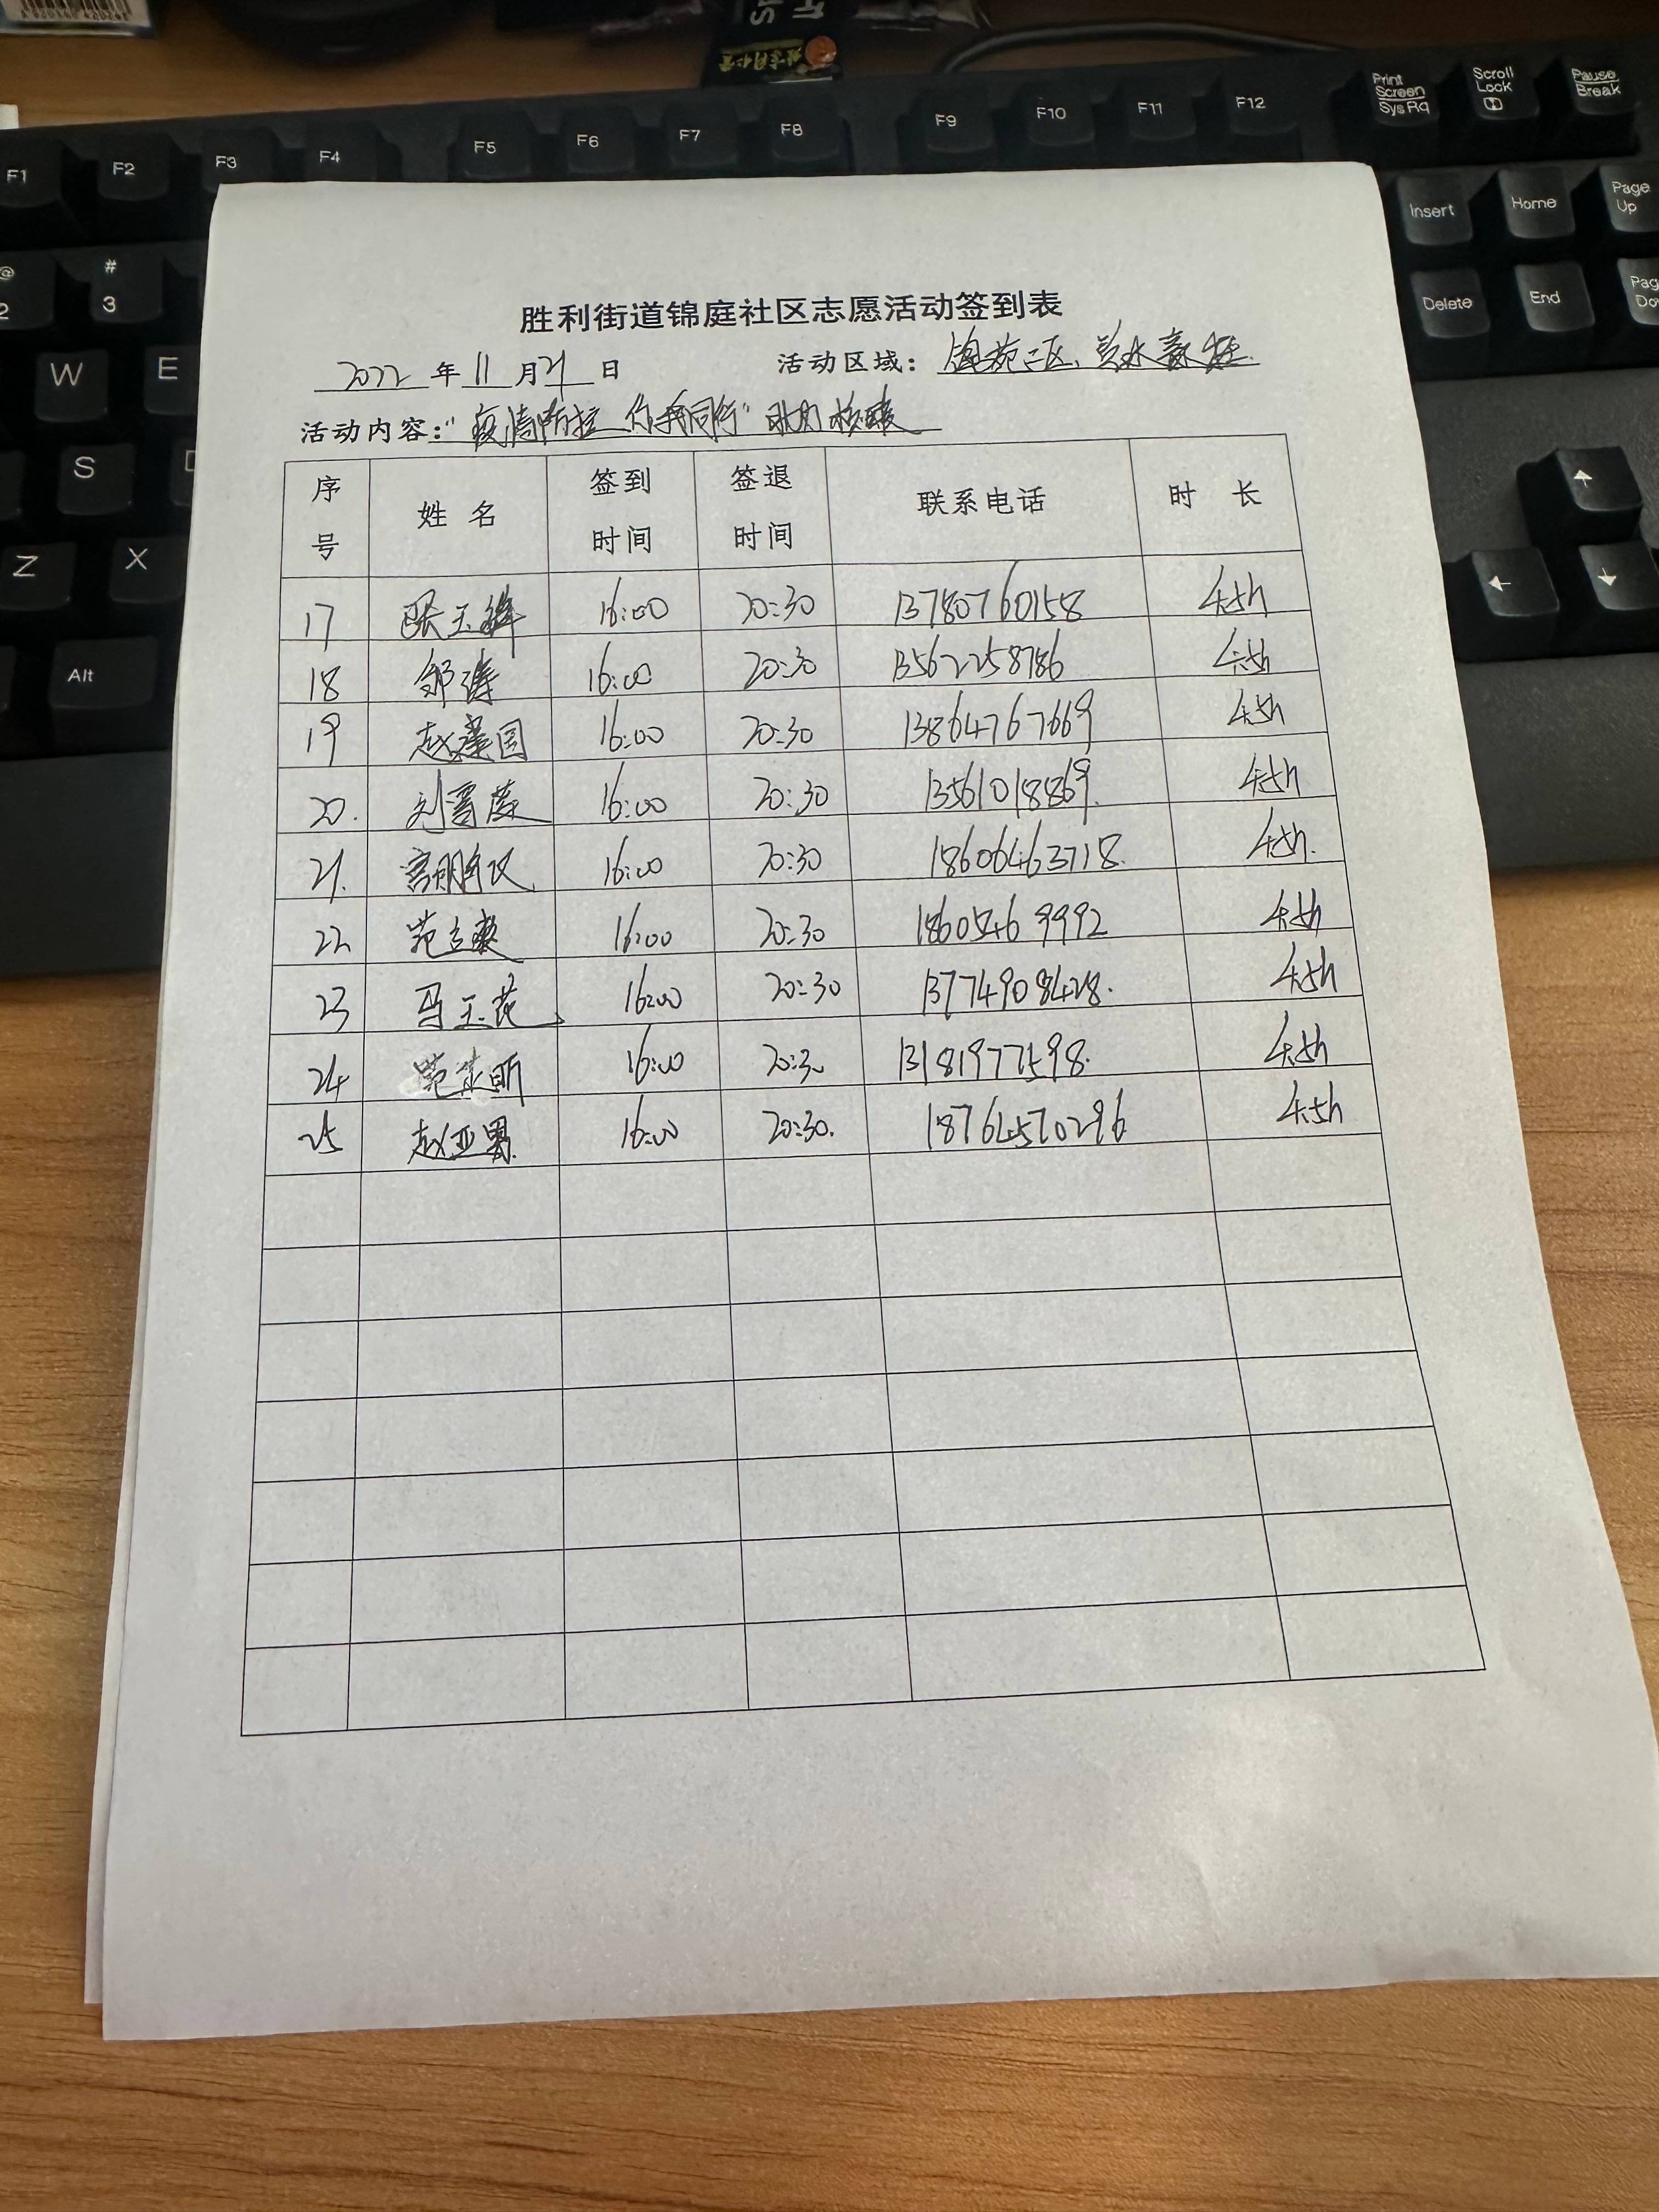 F1 F2 F3 F4 F5 F6 F7 F8 F9 F10 F11 F12 Print Screen SysRq Scroll Lock Pause Break
@ 2 # 3 Insert Home Page Up
W E Delete End
S
Z X
Alt
胜利街道锦庭社区志愿活动签到表
2022 年 11 月 21 日 活动区域： 锦苑二区、
活动内容：“疫情防控 你我同行” 核酸
序号 姓名 签到时间 签退时间 联系电话 时长
17 张玉 16:00 20:30 13780760158 4.5h
18 邹涛 16:00 20:30 13562258786 4.5h
19 赵 国 16:00 20:30 13864767669 4.5h
20. 刘雪 16:00 20:30 13561018869. 4.5h
21. 16:00 20:30 18606463718. 4.5h.
22 范立爽 16:00 20:30 18605469992 4.5h
23 马玉花 16:00 20:30 13774908428. 4.5h
24 范 昕 16:00 20:30 13181977598. 4.5h
25 赵亚男. 16:00 20:30. 18764570296 4.5h